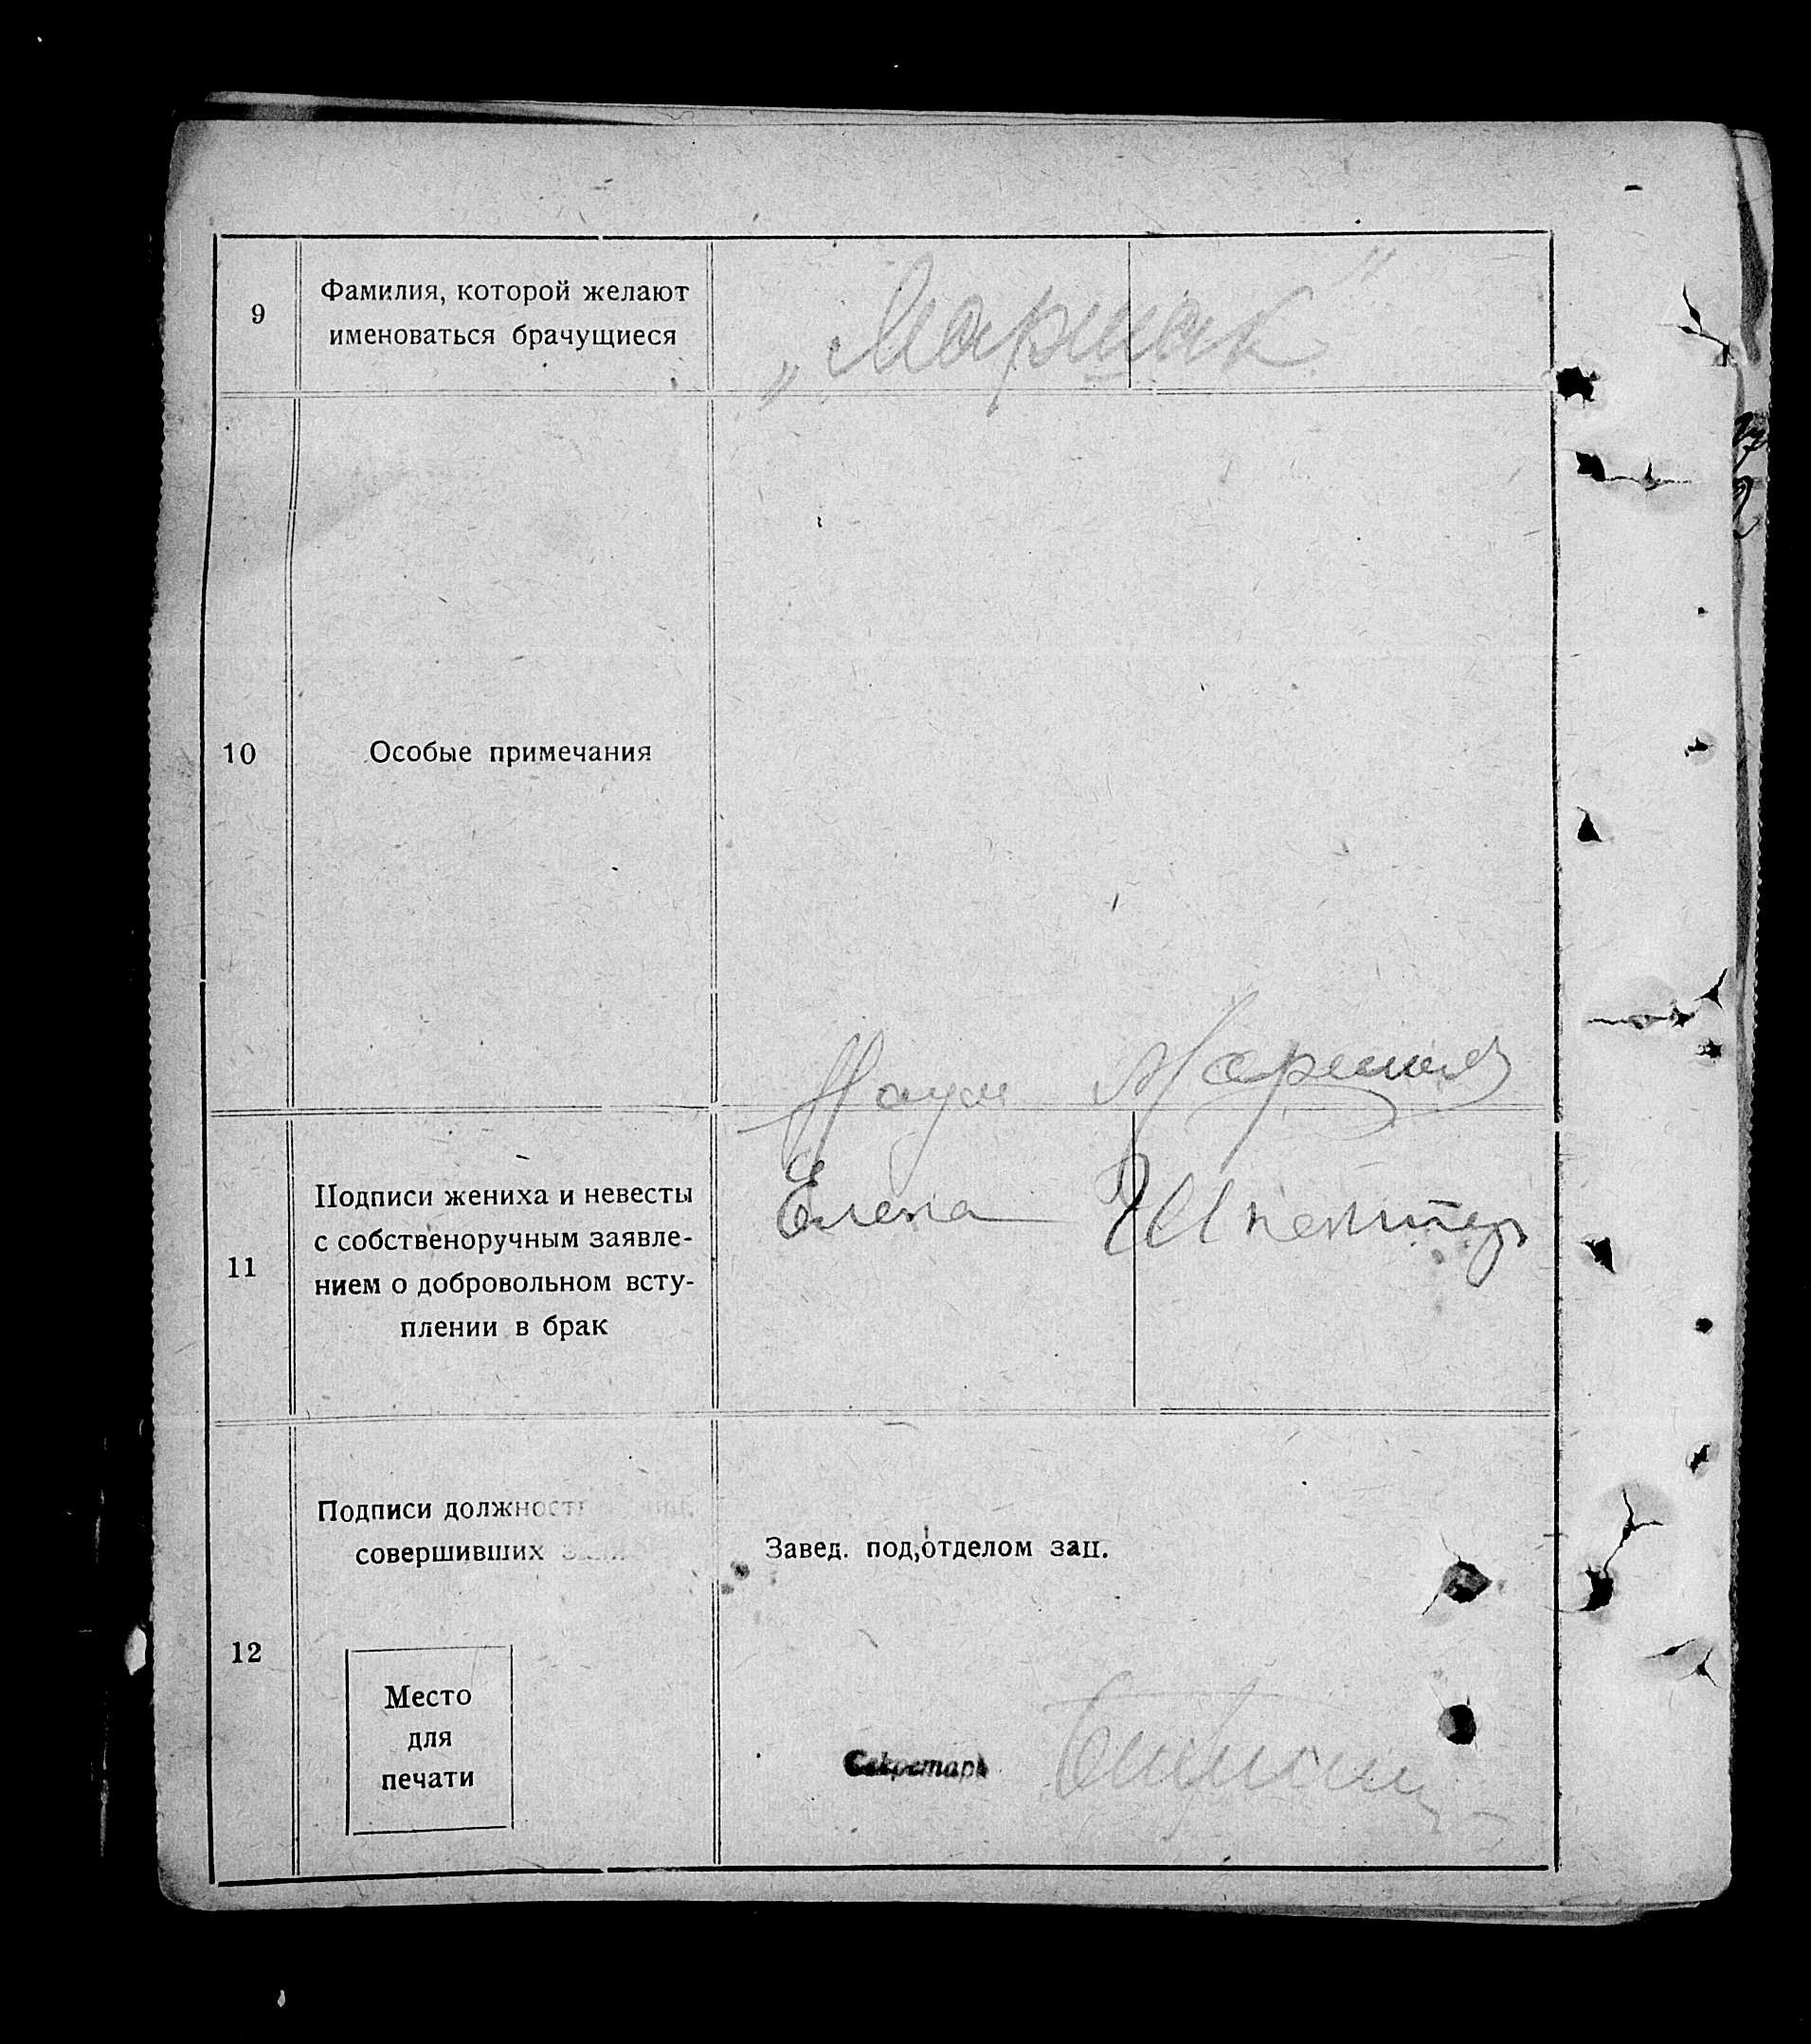 9
Фамилия, которой желают
именоваться брачущиеся
„Маршак“
10
Особые примечания
Наум Маршак
11
Подписи жениха и невесты
с собственоручным заявле-
нием о добровольном всту-
плении в брак
Елена
12
Подписи должност
совершивших
Завед. под,отделом зап.
Место
для
печати
Секретарь